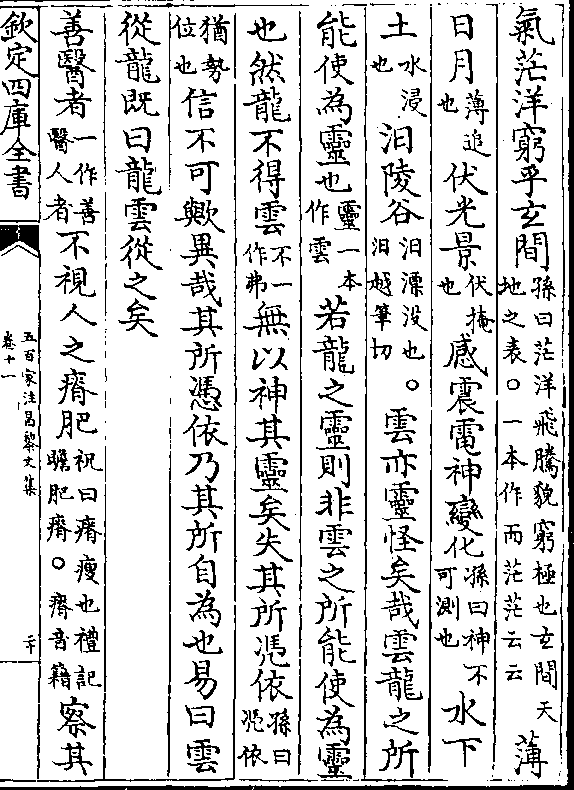 氣茫洋窮乎玄間孫曰茫洋飛騰貌窮極也玄間天地之表○一本作而茫茫云云薄
日月薄追也伏光景伏掩也感震電神變化孫曰神不可測也水下
土水浸也汩陵谷汩漂没也○汩越筆切雲亦靈怪矣哉雲龍之所
能使為靈也靈一本作雲若龍之靈則非雲之所能使為靈
也然龍不得雲不一作弗無以神其靈矣失其所憑依孫曰憑依
猶勢位也信不可歟異哉其所憑依乃其所自為也易曰雲
從龍既曰龍雲從之矣
善醫者一作善醫人者不視人之瘠肥祝曰瘠瘦也禮記瞻肥瘠○瘠音籍察其
欽定四庫全書
五百家注昌黎文集
卷十一
二十